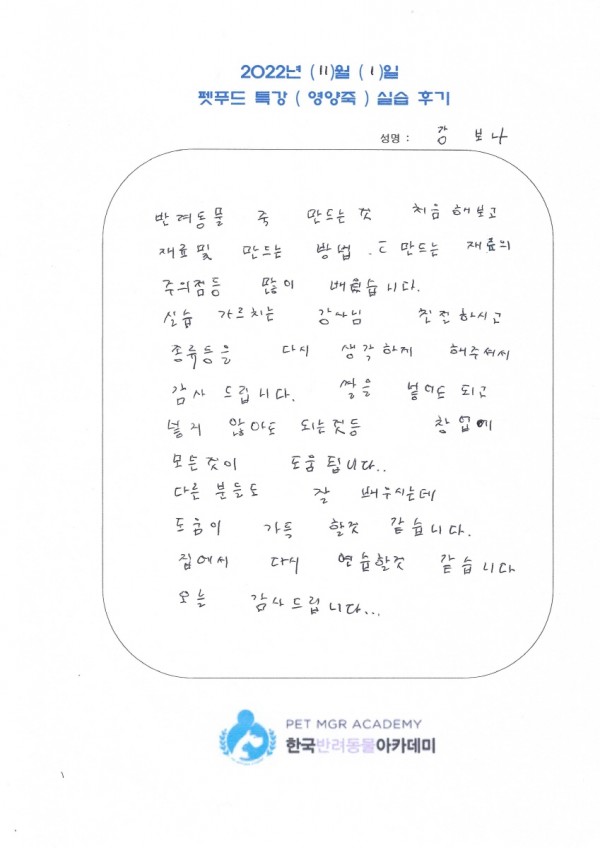 2022년 (11)월 (1)일
펫푸드 특강 ( 영양죽 ) 실습 후기
성명 : 강 보 나
반려동물 죽 만드는것 처음 해보고
재료및 만드는 방법. 만드는 재료의
주의점등 많이 배웠습니다.
실습 가르치는 강사님 친절하시고
종류등을 다시 생각하게 해주셔서
감사 드립니다. 쌀을 넣어도 되고
넣지 않아도 되는것등 창업에
모든것이 도움 됩니다..
다른 분들도 잘 배우시는데
도움이 가득 할것 같습니다.
집에서 다시 연습할것 같습니다
오늘 감사드립니다...
PET MGR ACADEMY
한국반려동물아카데미